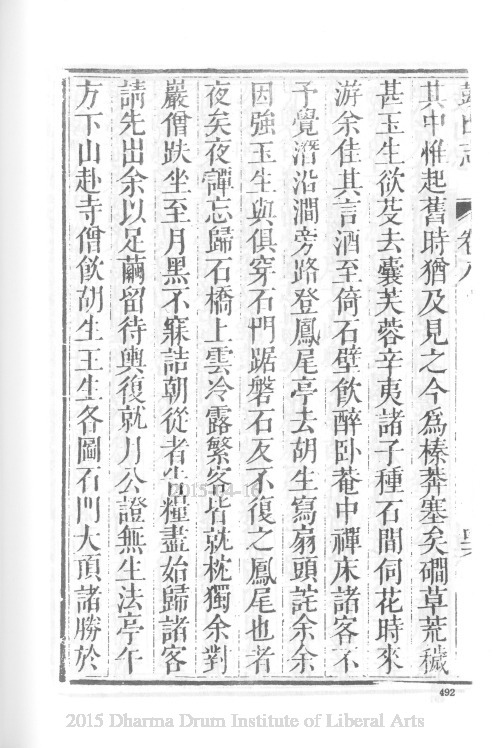 卷八
其中惟起舊時猶及見之今爲榛莽塞矣磵草荒穢
甚玉生欲芟去囊芙蓉辛夷諸子種石間伺花時來
游余佳其言酒至倚石壁飲醉卧菴中禪床諸客不
予覺潛沿澗旁路登鳳尾亭去胡生寫扇頭詫余余
因強玉生與俱穿石門踞磐石反不復之鳳尾也者
夜矣夜譚忘歸石橋上雲冷露繁客皆就枕獨余對
巖僧趺坐至月黑不寐詰朝從者告糧盡始歸諸客
請先出余以足繭留待輿復就月公證無生法亭午
方下山赴寺僧飲胡生王生各圖石門大頂諸勝於
492
2015-04-10
2015 Dharma Drum Institute of Liberal Arts